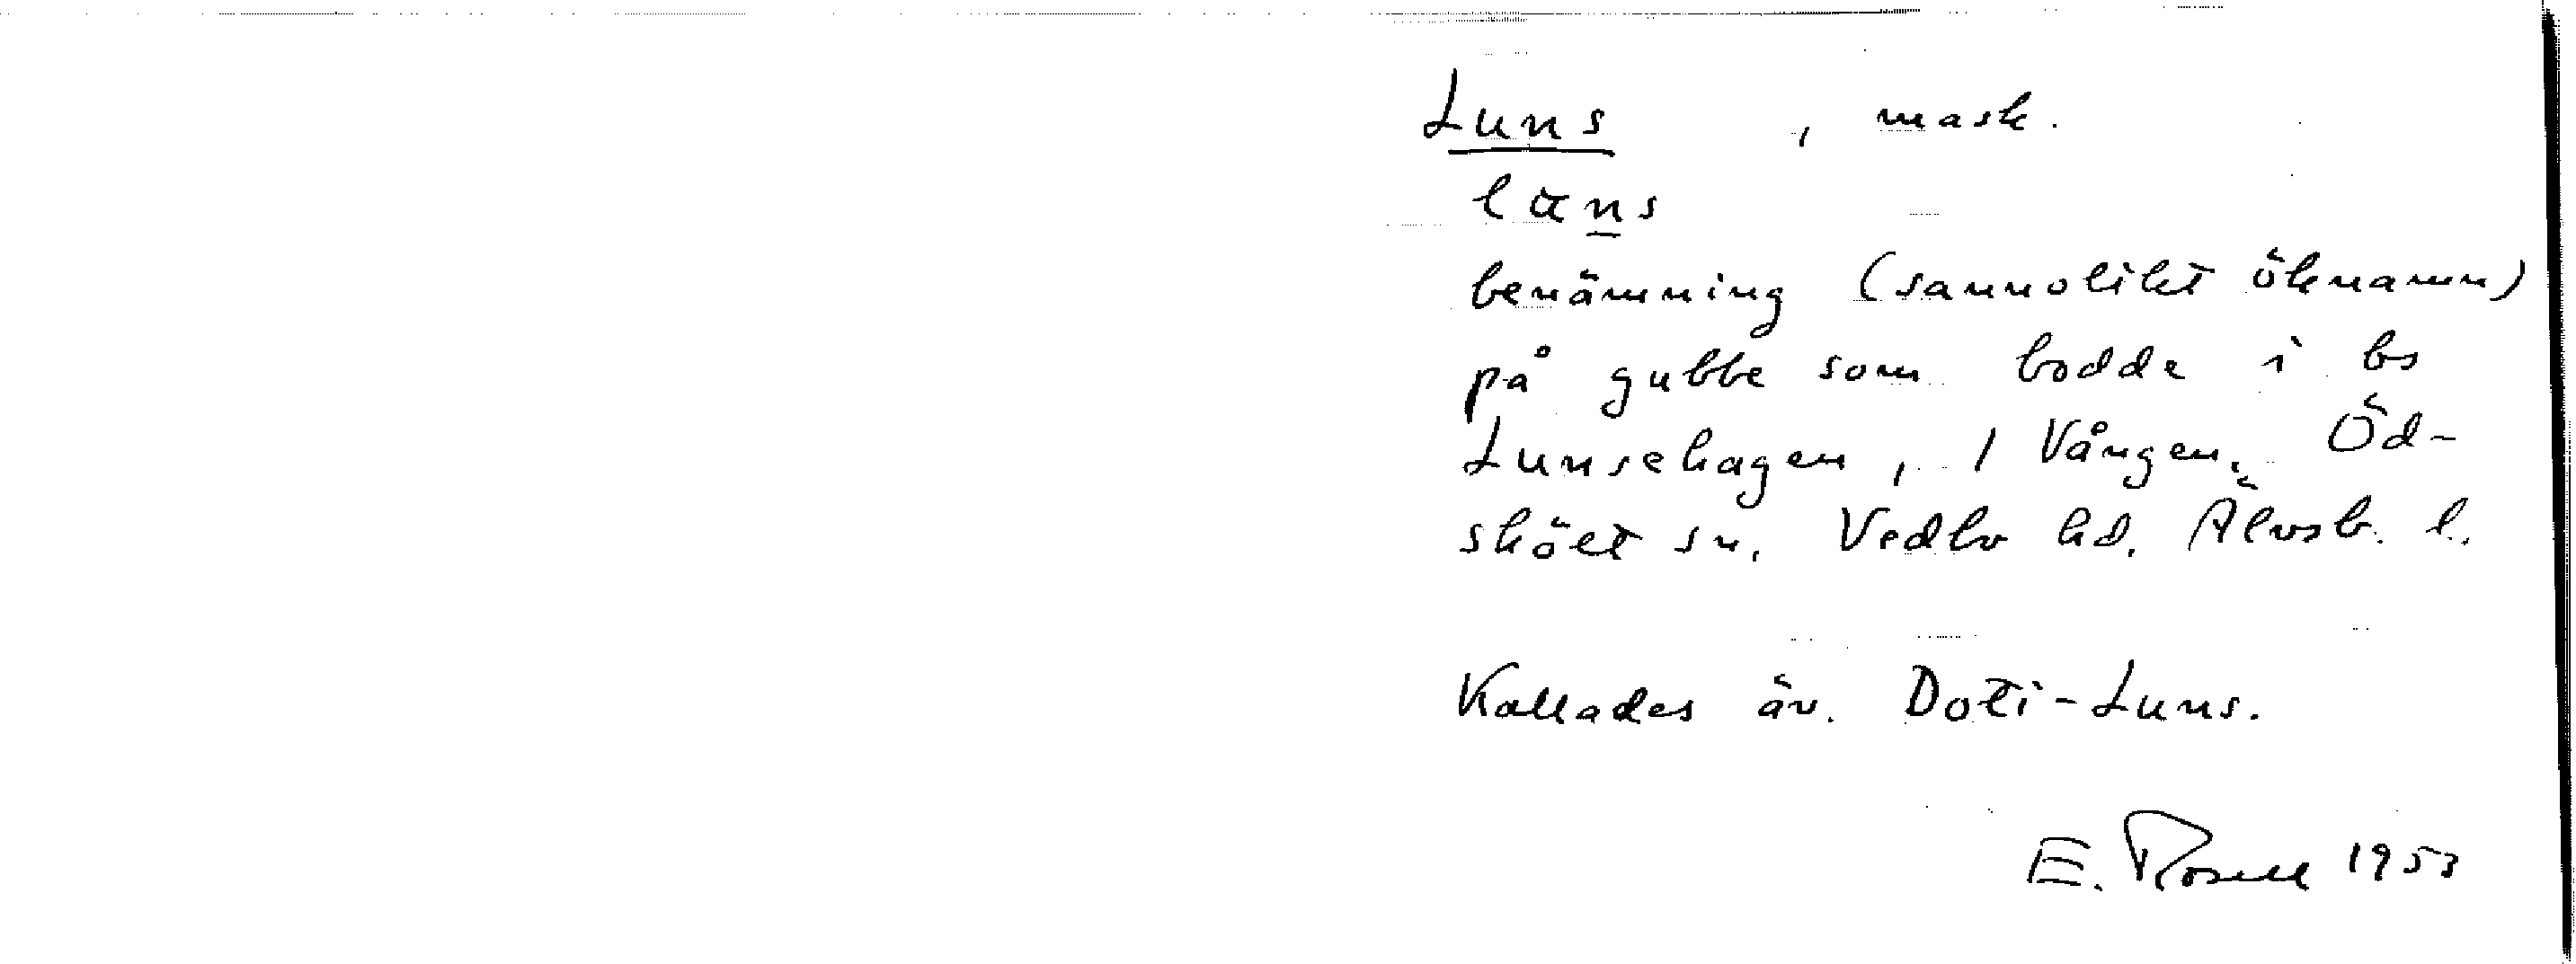 Luns , mask.
lɑns
benämning (sannolikt öknamn)
på gubbe som bodde i bs
Lunsehagen, 1 Vången, Öd-
skölt sn. Vedbo hd. Älvsb. l.
Kallades äv. Doti-Luns.
E. Rosell 1953